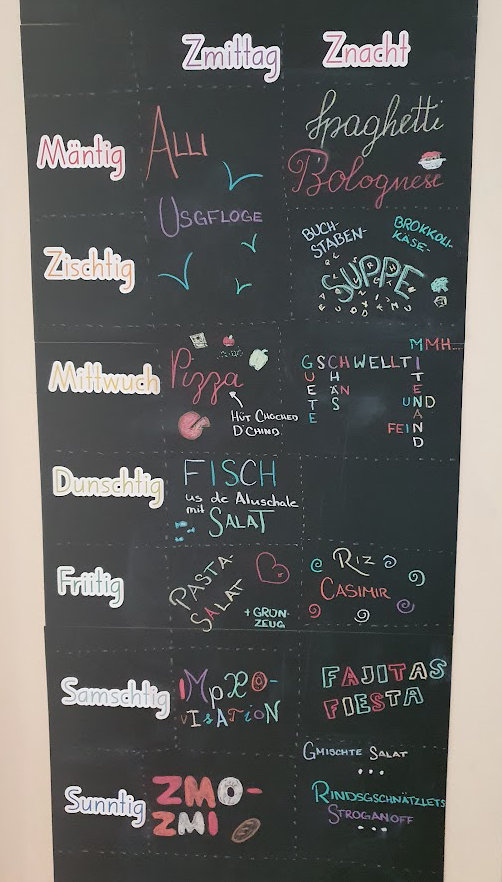 Zmittag Znacht
Mäntig
ALLI
USGFLOGE
Spaghetti
Bolognese
Zischtig
BUCH-
STABEN-
BROKKOLI-
KÄSE-
SUPPE
Mittwuch
Pizza
HÜT CHOCHED
D'CHIND
MMH...
GSCHWELLTI
GUETE
SCHÄNS
MITENAND
UND
FEIN
Dunschtig
FISCH
us de Aluschale
mit
SALAT
Friitig
PASTA-
SALAT
+ GRÜN-
ZEUG
RIZ
CASIMIR
Samschtig
IMPRO-
VISATION
FAJITAS
FIESTA
Sunntig
ZMO-
ZMI
GMISCHTE SALAT
...
RINDSGSCHNÄTZLETS
STROGANOFF
...